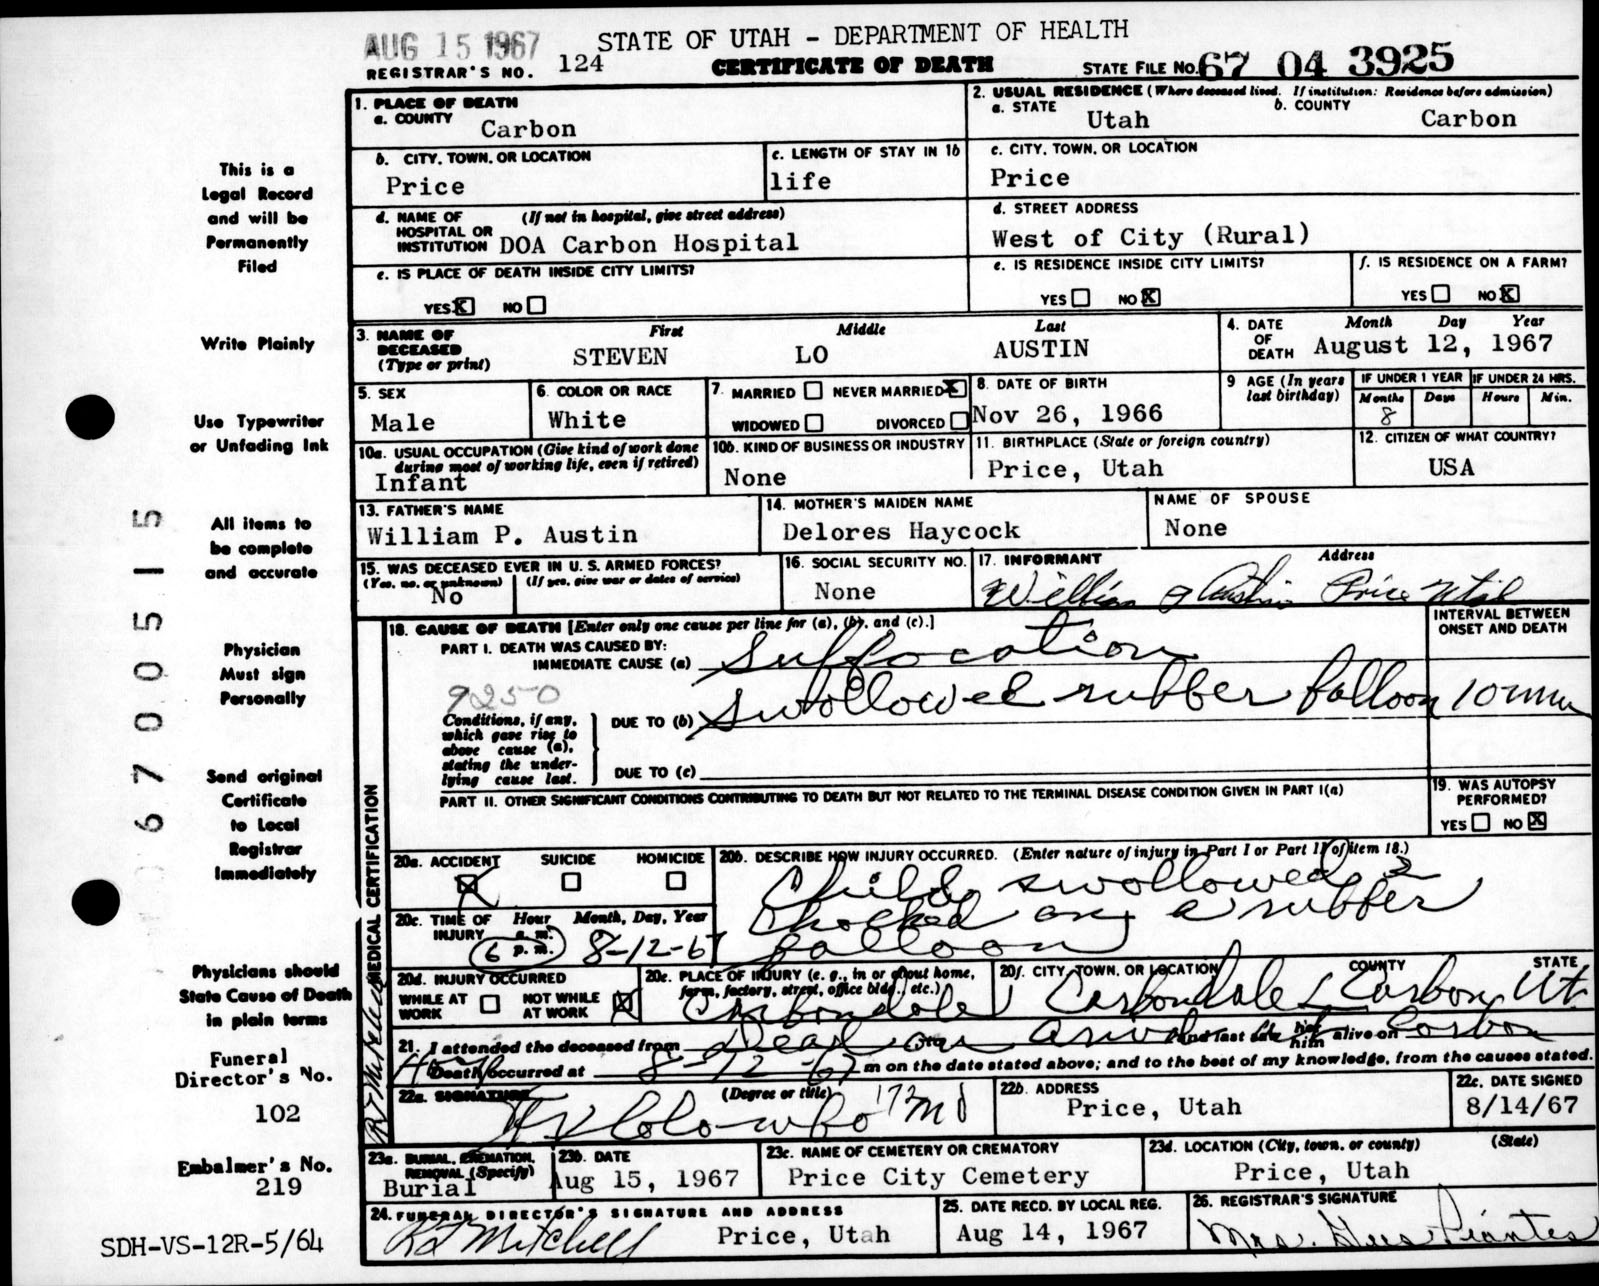 AUG 15 1967
STATE OF UTAH - DEPARTMENT OF HEALTH
REGISTRAR'S NO. 124 CERTIFICATE OF DEATH STATE FILE NO. 67 04 3925
1. PLACE OF DEATH
a. COUNTY Carbon
2. USUAL RESIDENCE (Where deceased lived. If institution: Residence before admission)
a. STATE Utah b. COUNTY Carbon
b. CITY, TOWN, OR LOCATION Price
c. LENGTH OF STAY IN 1b life
c. CITY, TOWN, OR LOCATION Price
d. NAME OF HOSPITAL OR INSTITUTION (If not in hospital, give street address) DOA Carbon Hospital
d. STREET ADDRESS West of City (Rural)
e. IS PLACE OF DEATH INSIDE CITY LIMITS?
YES X NO
e. IS RESIDENCE INSIDE CITY LIMITS?
YES NO X
f. IS RESIDENCE ON A FARM?
YES NO X
3. NAME OF DECEASED (Type or print)
First Middle Last
STEVEN LO AUSTIN
4. DATE OF DEATH Month Day Year
August 12, 1967
5. SEX Male
6. COLOR OR RACE White
7. MARRIED NEVER MARRIED X
WIDOWED DIVORCED
8. DATE OF BIRTH Nov 26, 1966
9 AGE (In years last birthday)
IF UNDER 1 YEAR IF UNDER 24 HRS.
Months Days Hours Min.
8
10a. USUAL OCCUPATION (Give kind of work done during most of working life, even if retired)
Infant
10b. KIND OF BUSINESS OR INDUSTRY
None
11. BIRTHPLACE (State or foreign country)
Price, Utah
12. CITIZEN OF WHAT COUNTRY?
USA
13. FATHER'S NAME
William P. Austin
14. MOTHER'S MAIDEN NAME
Delores Haycock
NAME OF SPOUSE
None
15. WAS DECEASED EVER IN U. S. ARMED FORCES?
(Yes, no, or unknown) (If yes, give war or dates of service)
No
16. SOCIAL SECURITY NO.
None
17. INFORMANT Address
William P Austin Price Utah
18. CAUSE OF DEATH [Enter only one cause per line for (a), (b), and (c).]
INTERVAL BETWEEN ONSET AND DEATH
PART I. DEATH WAS CAUSED BY:
IMMEDIATE CAUSE (a) Suffocation
9250
Conditions, if any, which gave rise to above cause (a), stating the underlying cause last.
DUE TO (b) Swollowed rubber balloon 10 min
DUE TO (c)
PART II. OTHER SIGNIFICANT CONDITIONS CONTRIBUTING TO DEATH BUT NOT RELATED TO THE TERMINAL DISEASE CONDITION GIVEN IN PART I(a)
19. WAS AUTOPSY PERFORMED?
YES NO X
MEDICAL CERTIFICATION
20a. ACCIDENT SUICIDE HOMICIDE
X
20b. DESCRIBE HOW INJURY OCCURRED. (Enter nature of injury in Part I or Part II of item 18.)
Child swollowed &
choked on a rubber
balloon
20c. TIME OF INJURY Hour a.m. p.m. Month, Day, Year
6 8-12-67
20d. INJURY OCCURRED
WHILE AT WORK NOT WHILE AT WORK X
20e. PLACE OF INJURY (e. g., in or about home, farm, factory, street, office bldg., etc.)
Carbondale
20f. CITY, TOWN, OR LOCATION COUNTY STATE
Carbondale Carbon Ut.
21. I attended the deceased from Dead on arival and last saw him alive on Carbon
Hosp Death occurred at 8-12-67 m on the date stated above; and to the best of my knowledge, from the causes stated.
22a. SIGNATURE (Degree or title)
Colombo MD
22b. ADDRESS
Price, Utah
22c. DATE SIGNED
8/14/67
23a. BURIAL, CREMATION, REMOVAL (Specify)
Burial
23b. DATE
Aug 15, 1967
23c. NAME OF CEMETERY OR CREMATORY
Price City Cemetery
23d. LOCATION (City, town, or county) (State)
Price, Utah
24. FUNERAL DIRECTOR'S SIGNATURE AND ADDRESS
Mitchell Price, Utah
25. DATE RECD. BY LOCAL REG.
Aug 14, 1967
26. REGISTRAR'S SIGNATURE
Mrs.
This is a
Legal Record
and will be
Permanently
Filed
Write Plainly
Use Typewriter
or Unfading Ink
All items to
be complete
and accurate
Physician
Must sign
Personally
Send original
Certificate
to Local
Registrar
Immediately
Physicians should
State Cause of Death
in plain terms
Funeral
Director's No.
102
Embalmer's No.
219
SDH-VS-12R-5/64
067005 1 5